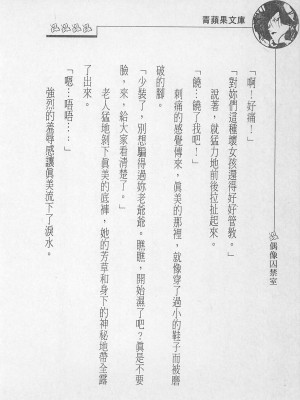 青蘋果文庫
偶像囚禁室
「啊！好痛！」
「對妳們這種壞女孩還得好好管教。」
說著，就猛力地前後拉扯起來。
「饒……饒了我吧！」
刺痛的感覺傳來，眞美的那裡，就像穿了過小的鞋子而被磨
破的腳。
「少裝了，別想騙得過妳老爺爺。瞧瞧，開始濕了吧？眞是不要
臉，來，給大家看清楚了。」
老人猛地剝下眞美的底褲，她的芳草和身下的神秘地帶全露
了出來。
「嗯……唔唔……」
強烈的羞辱感讓眞美流下了淚水。